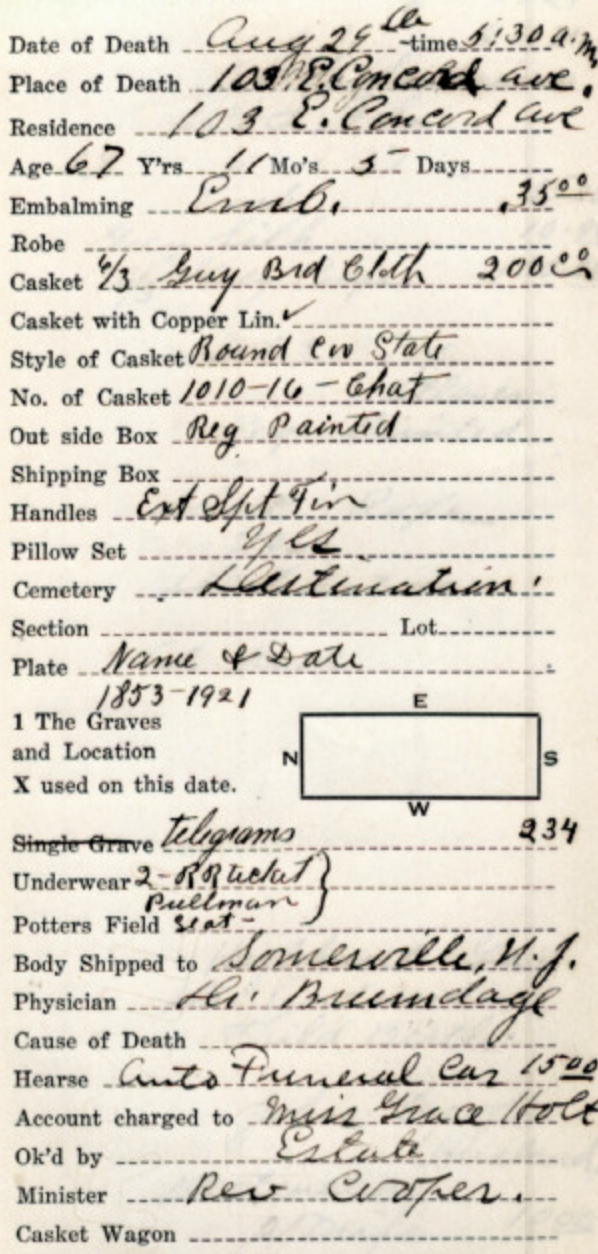 Date of Death Aug 29th time 5:30 a.m.
Place of Death 103 E. Concord ave.
Residence 103 E. Concord ave
Age 67 Y'rs 11 Mo's 5 Days
Embalming Emb. .35 00
Robe
Casket 6/3 Grey Brd Cloth 200 00
Casket with Copper Lin. ✓
Style of Casket Round Cor State
No. of Casket 1010-16 - Chat
Out side Box Reg Painted
Shipping Box
Handles Ext Tin
Pillow Set Yes
Cemetery Destination.
Section Lot
Plate Name & Date
1853-1921
E
1 The Graves
and Location
X used on this date.
N S
W
Single Grave telegrams 234
Underwear 2-RR ticket
Pullman
Potters Field seat -
Body Shipped to Somerville, N.J.
Physician Dr. Brumdage
Cause of Death
Hearse Auto Funeral Car 15 00
Account charged to Miss Grace Holt
Estate
Ok'd by
Minister Rev Cooper.
Casket Wagon